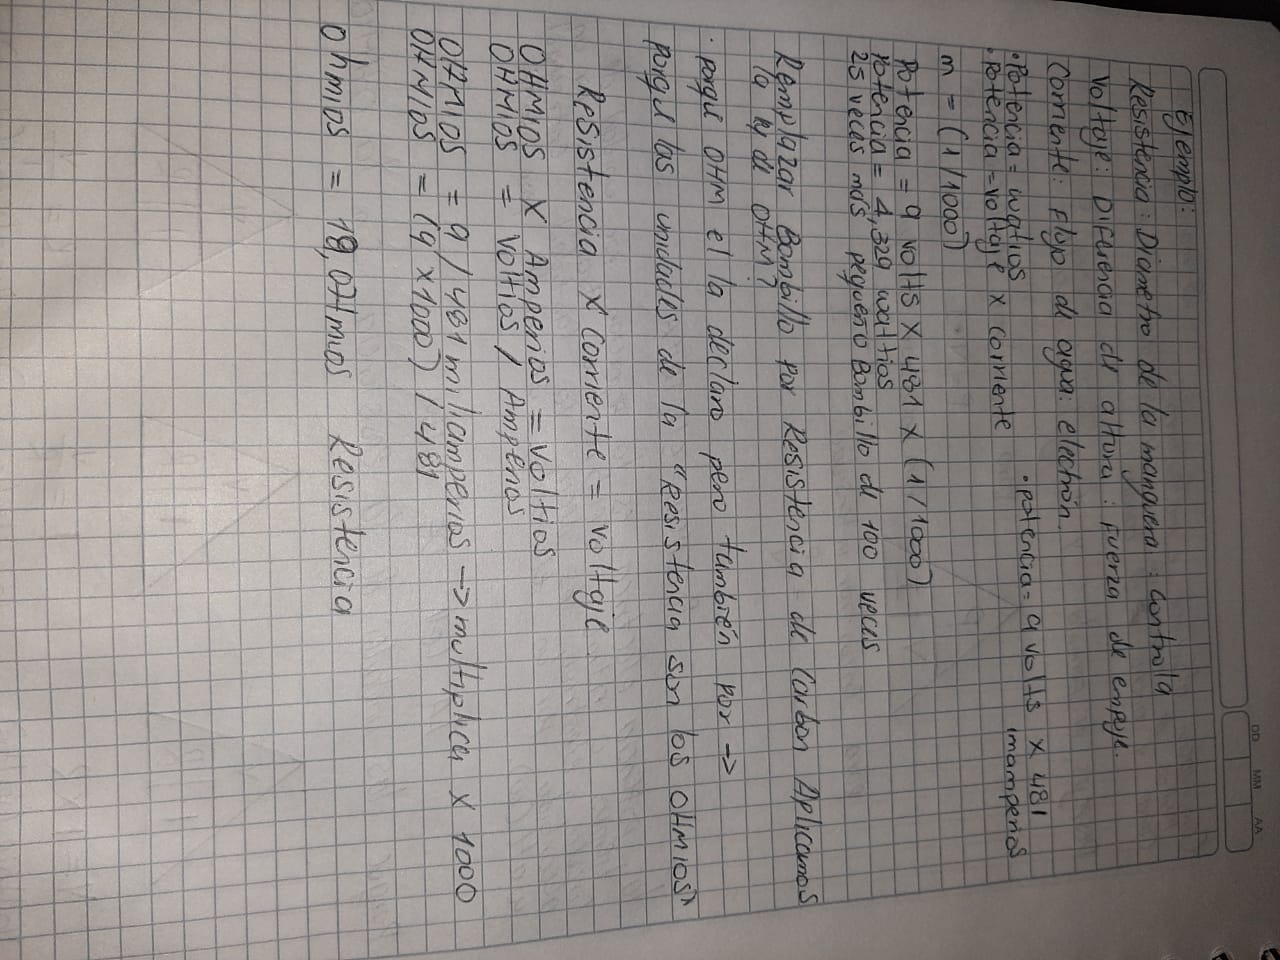 DD MM AA
Ejemplo:
Resistencia: Diametro de la manguera: controla
Voltaje: Diferencia de altura: fuerza de empuje.
Corriente: Flujo de agua: electrón.
• Potencia = watios
• Potencia = voltaje x corriente
• potencia = 9 volts x 481
mamperios
m = (1/1000)
Potecia = 9 volts x 481 x (1/1000)
Potencia = 4,329 wattios
25 veces más pequeño Bombillo de 100 veces
Remplazar Bombillo por Resistencia de Carbon Aplicamos
la ley de OHM?
• porque OHM el la declaro pero también por →
porque las unidades de la "Resistencia son los OHMIOS"
Resistencia x Corriente = voltaje
OHMIOS x Amperios = voltios
OHMIOS = voltios / Amperios
OHMIOS = 9 / 481 miliamperios → multiplica x 1000
OHMIOS = (9 x 1000) / 481
Ohmios = 19,0Hmos Resistencia